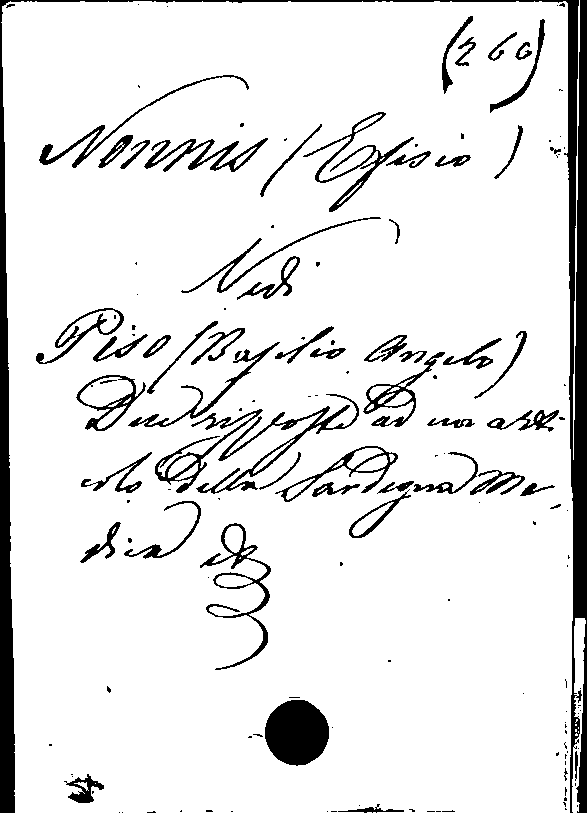 (266)
Nonnis (Efisio)
Vedi
Piso (Basilio Angelo)
Due risposte ad un arti-
colo della Sardegna Me-
dica &